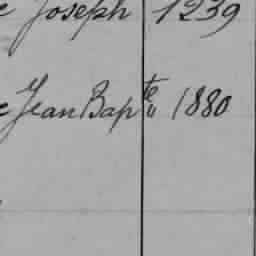 e Joseph 1239
e Jean Bapte 1880